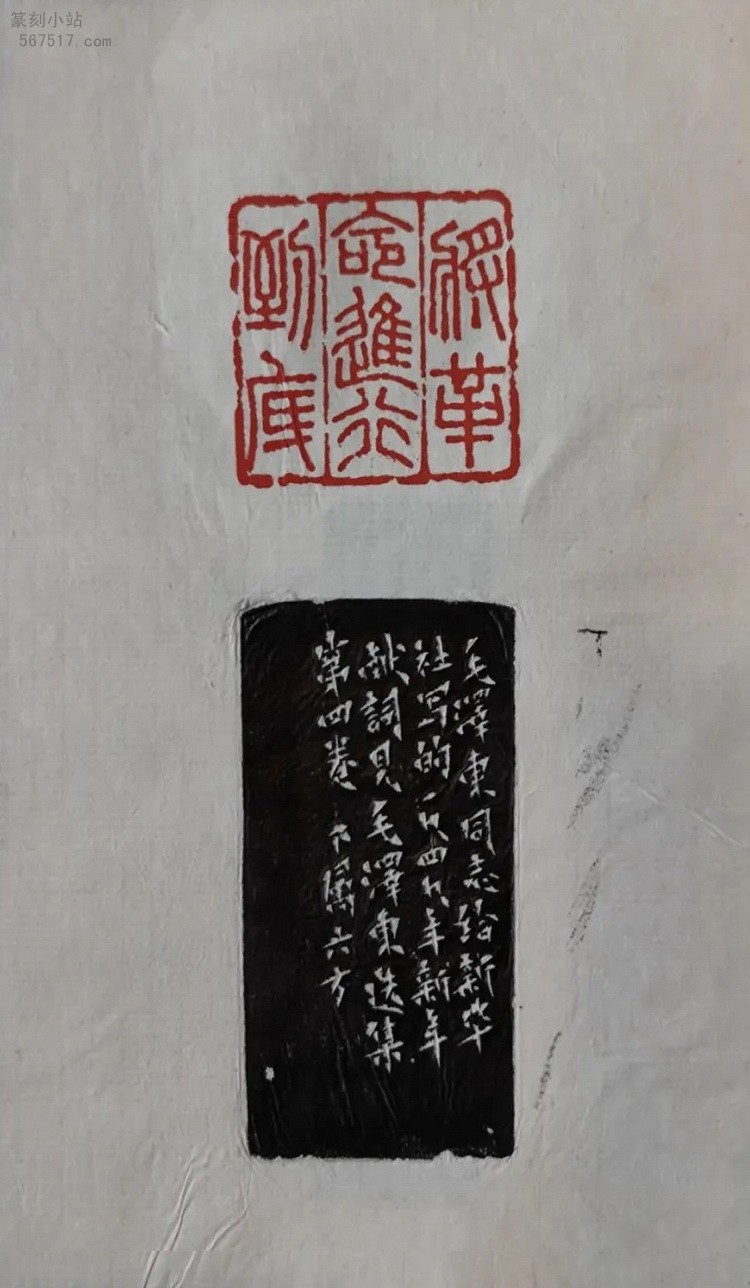 篆刻小站
567517.com
將革
命進行
到底
毛澤東同志给新华
社写的一九四九年新年
献詞見毛澤東选集
第四卷